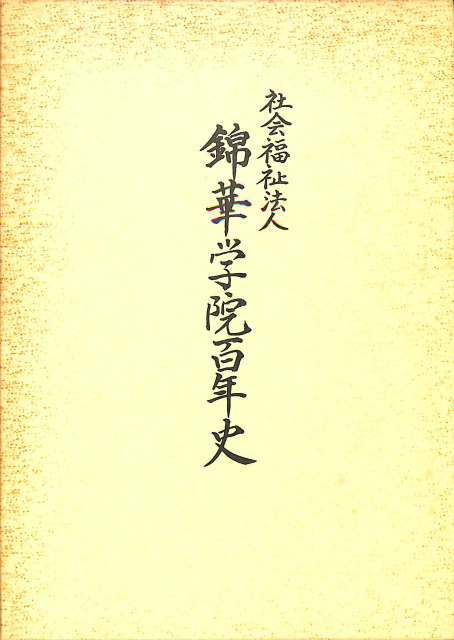 社会福祉法人
錦華学院百年史